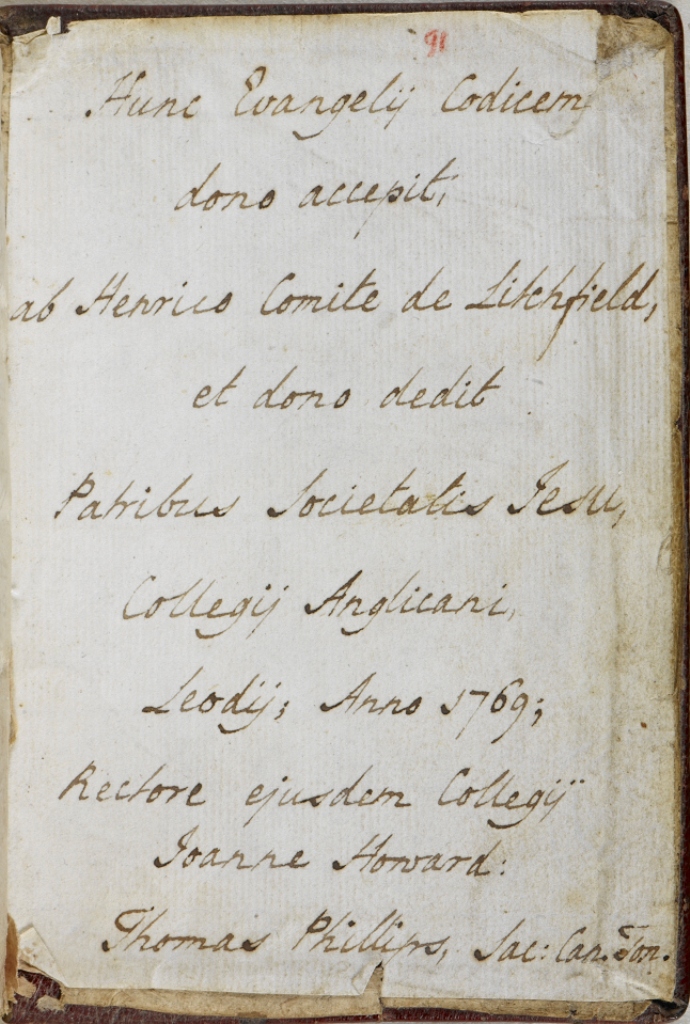 91
Hunc Evangelij Codicem
dono accepit,
ab Henrico Comite de Litchfield,
et dono dedit
Patribus Societatis Jesu,
Collegij Anglicani,
Leodij; Anno 1769;
Rectore ejusdem Collegij
Joanne Howard:
Thomas Phillips, Sac: Can. Ton.